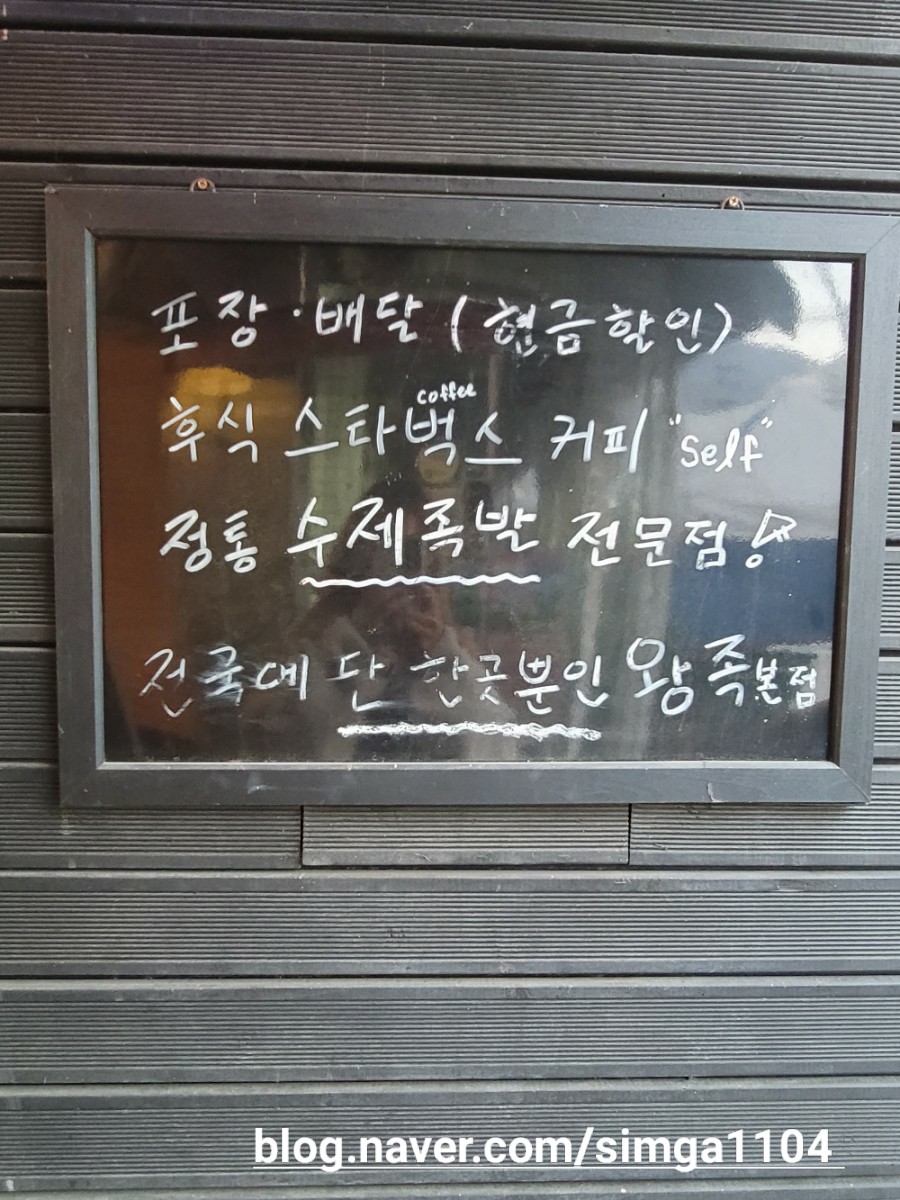 포장·배달 (현금할인)
coffee
후식 스타벅스 커피 "Self"
정통 수제족발 전문점!
전국에 단 한곳뿐인 왕족본점
blog.naver.com/simga1104